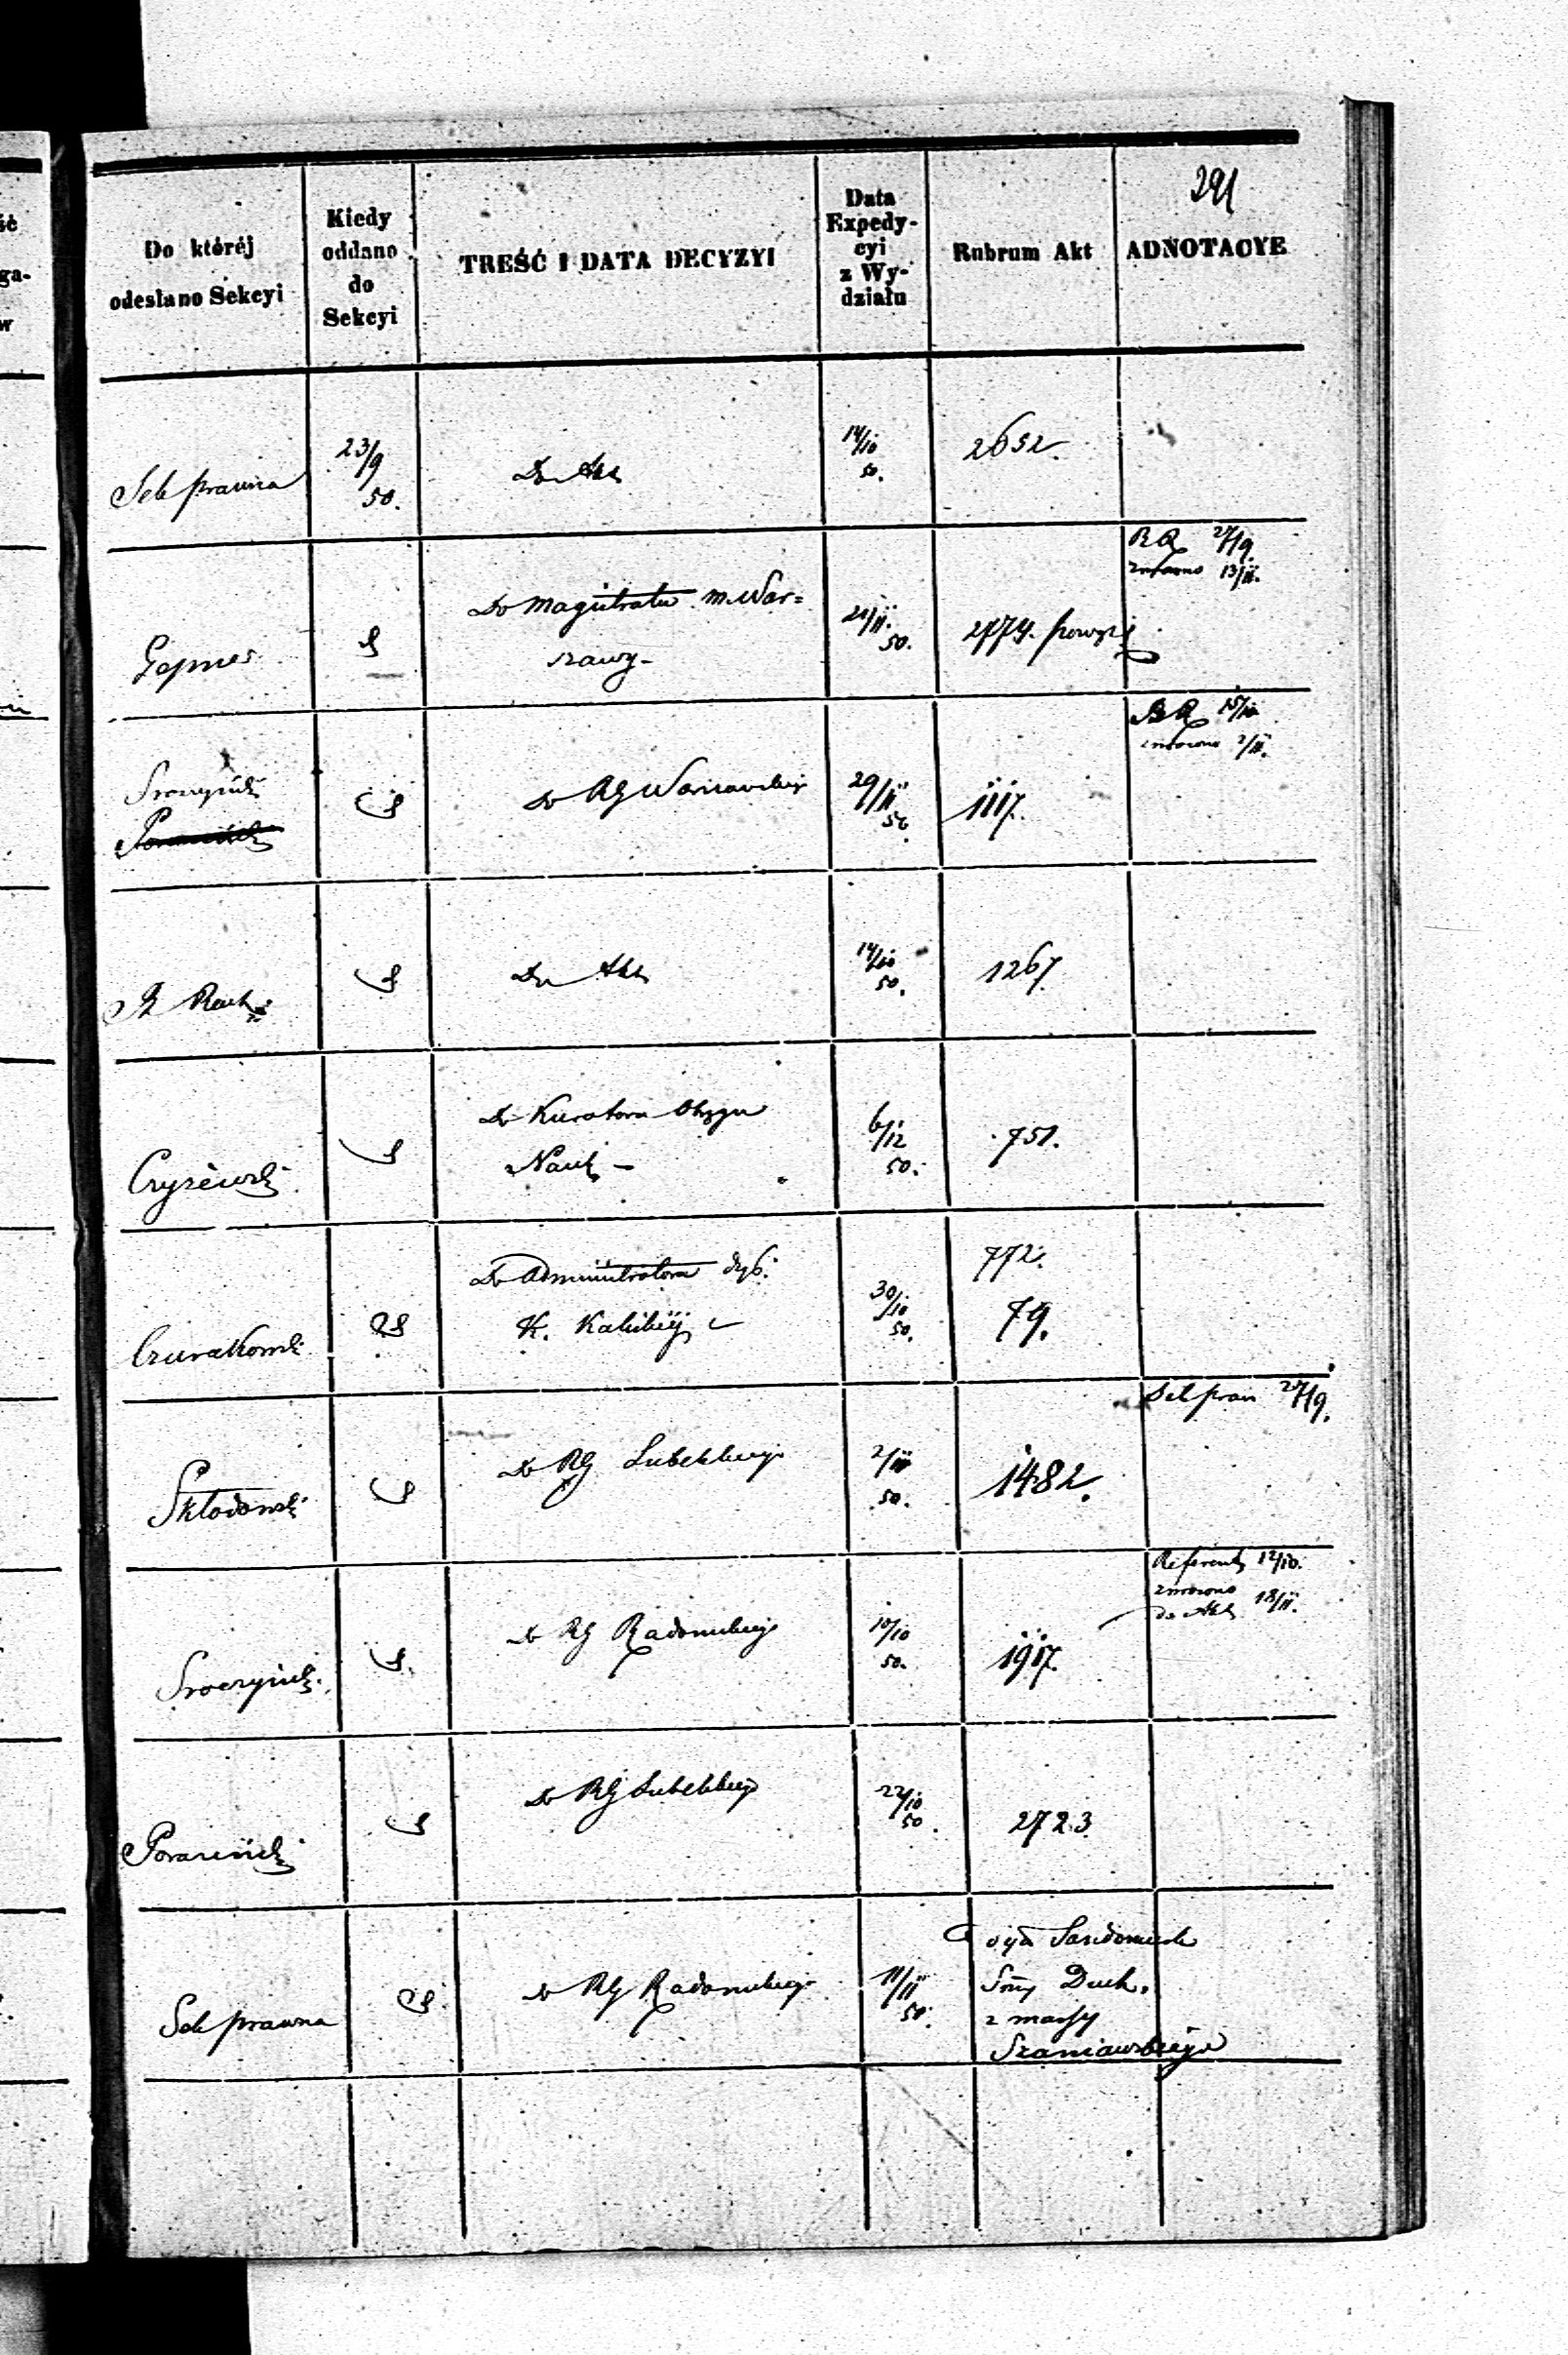 291
Do któréj
odesłano Sekcyi
Kiedy
oddano
do
Sekcyi
TREŚĆ I DATA DECYZYI
Data
Expedy-
cyi
z Wy-
działu
Rubrum Akt
ADNOTACYE
Sek prawna
23/9
50.
Do Akt
14/10
50.
2652.
Gepner
Do Magistratu m. War=
szawy
21/11.
50.
2774.
27/9.
zwrócono 13/11.
Sroczyński
Do RG Warszawskiej
29/11
50
1117.
15/10
zwrócono 2/11.
Do Akt
14/10
50.
1267
Czyżewski
Do Kuratora Okręgu
Nauk
6/12
50.
751.
Czurakowski
Do Administratora dyć.
K. Kaliskiéj
30/10
50.
772.
79.
Skłodowski
Do RG Lubelskiego
2/11
50.
1482.
Sek praw 27/9.
Sroczyński
Do RG Radomskiego
10/10
50.
1917.
Referent 12/10.
zwrócono
do Akt 18/11.
Poraziński
Do RG Lubelskiego
22/10
50.
2723.
Sek prawna
Do RG Radomskiego
11/11
50.
Duch.
z massy
Szaniawskiego